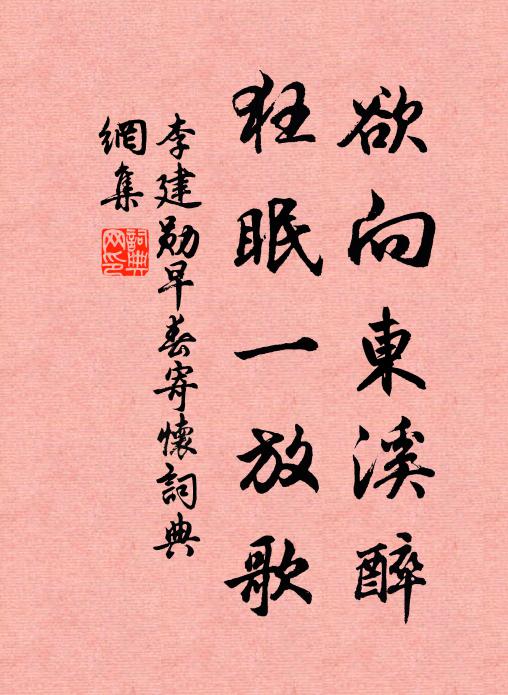 欲向東溪醉
狂眠一放歌
李建勛早春寄懷詞典
網集
詞典
網印